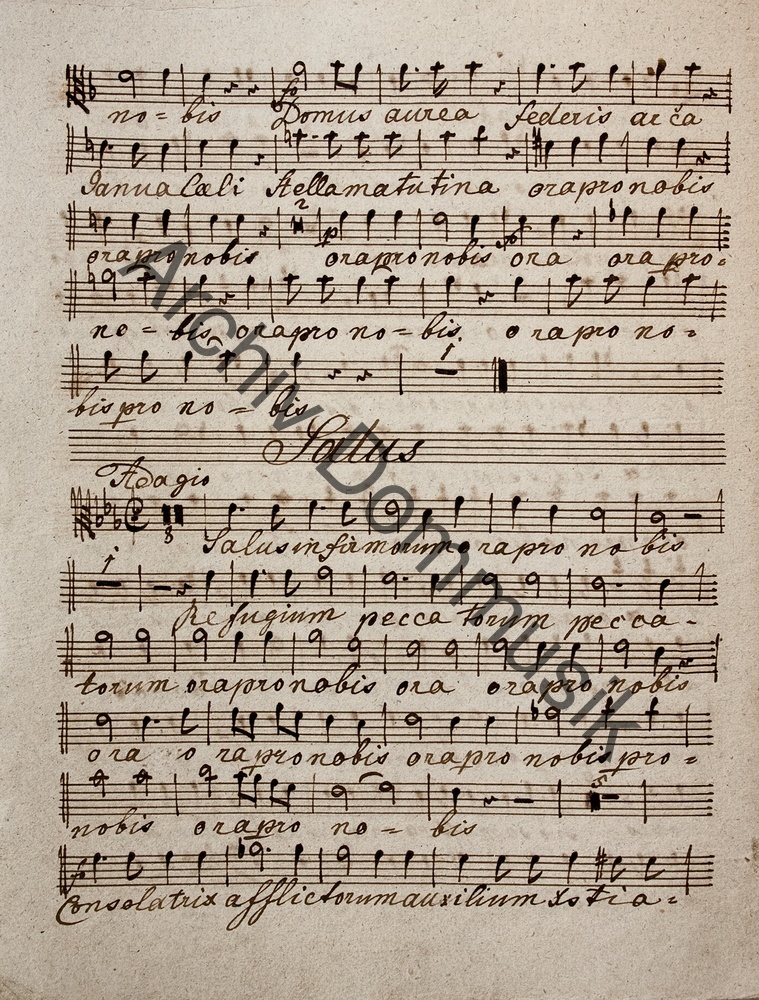 no = bis Domus aurea federis arca
Janua Cæli Stella matutina ora pro nobis
2
ora pro nobis ora pro nobis ora ora pro =
no = bis, ora pro no = bis. o ra pro no =
1
bis pro no = bis
Salus
Adagio
8
Salus infirmorum o ra pro no bis
1
Refugium pecca torum pecca -
torum ora pro nobis ora ora pro nobis
ora o ra pro nobis ora pro nobis pro =
nobis ora pro no = bis
Consolatrix afflictorum auxilium Xstia =
Archiv Dommusik